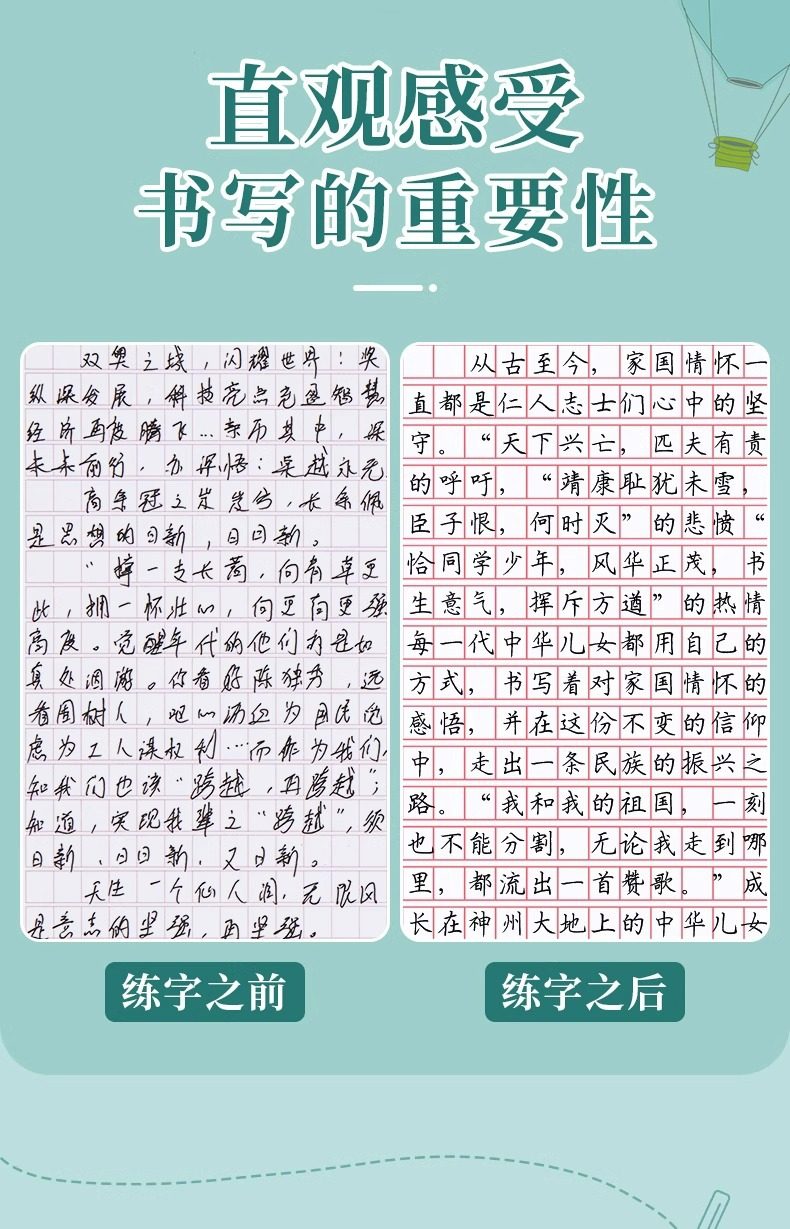 直观感受
书写的重要性
双奥之城，闪耀世界！奖
纵深发展，科技亮点充逐智慧
经济再度腾飞…亲历其中，深
未来前行，亦深悟：吴越永无
高余冠之岌岌兮，长余佩
是思想的日新，日日新。
“撑一支长蒿，向青草更
此，拥一怀壮心，向更向更强
高度。觉醒年代的他们为是如
真处洄游。你看好陈独秀，远
看周树人，
虑为工人谋权利…而作为我们，
知我们也该“跨越，再跨越”；
知道，实现我辈之“跨越”，须
日新、日日新、又日新。
天生一个仙人洞，无限风
是意志的坚强，再坚强。
从古至今，家国情怀一
直都是仁人志士们心中的坚
守。“天下兴亡，匹夫有责
的呼吁，“靖康耻犹未雪，
臣子恨，何时灭”的悲愤“
恰同学少年，风华正茂，书
生意气，挥斥方遒”的热情
每一代中华儿女都用自己的
方式，书写着对家国情怀的
感悟，并在这份不变的信仰
中，走出一条民族的振兴之
路。“我和我的祖国，一刻
也不能分割，无论我走到哪
里，都流出一首赞歌。”成
长在神州大地上的中华儿女
练字之前
练字之后